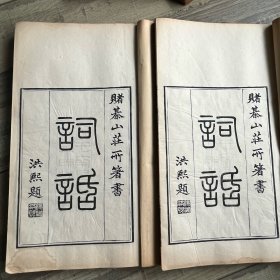 賭棊山莊所箸書
詞話
洪熙題
賭棊山莊所箸書
詞話
洪熙題